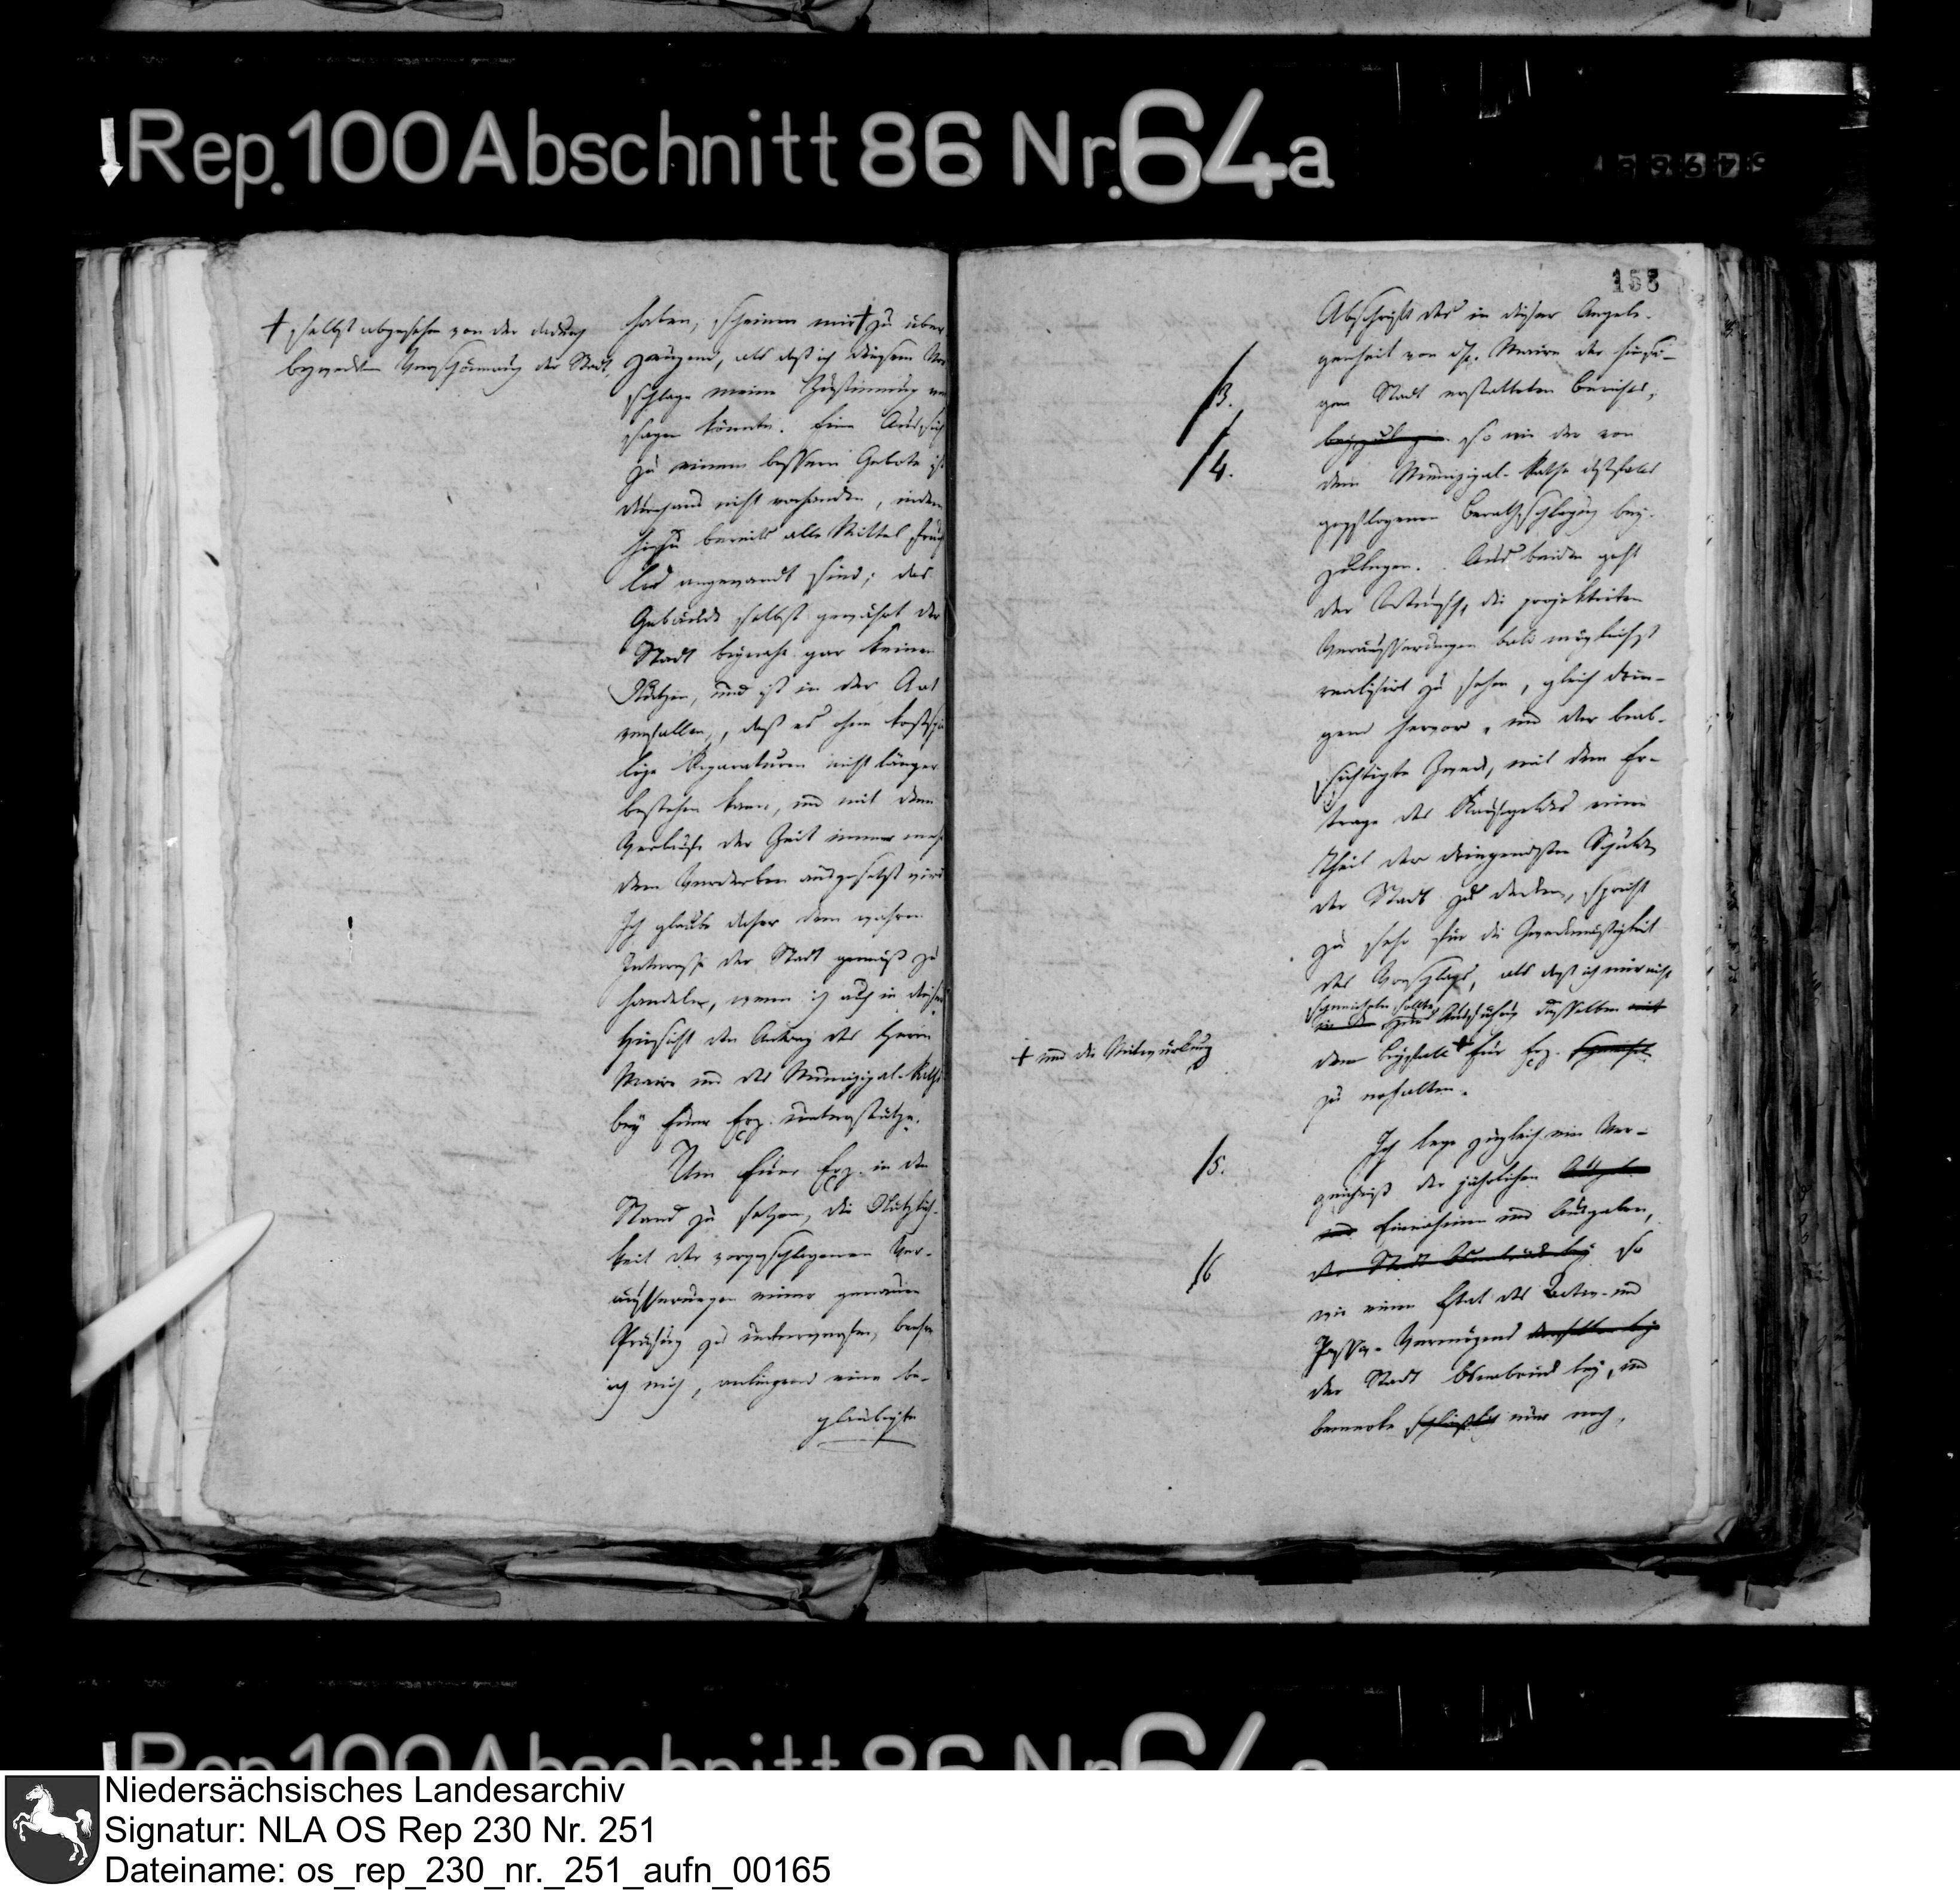 Rep. 100 Abschnitt 86 Nr. 64a
† selbst abgesehen von der dadurch
bezweckten Verschönerung der Stadt,
haben, scheinen mir † zu über
zeugend, als daß ich diesem Vor
schlage meine Zustimmung ver
sagen könnte. Eine Aussicht
zu einem bessern Gebote ist
durchaus nicht vorhanden, indem
hiezu bereits alle Mittel frucht
los angewandt sind; das
Gebäude selbst gewährt der
Stadt beynahe gar keinen
Nutzen, und ist in der Art
verfallen, daß es ohne kostspie
lige Reparaturen nicht länger
bestehen kann, und mit dem
Verlaufe der Zeit immer mehr
dem Verderben ausgesetzt wird
Ich glaube daher dem wahren
Interesse der Stadt gemäß zu
handeln, wenn ich auch in dieser
Hinsicht den Antrag des Herrn
Maire und des Munizipal-Raths
bey Euer Exz. unterstütze.
Um Euer Exz. in den
Stand zu setzen, die Nützlich-
keit der vorgeschlagenen Ver-
äusserungen einer genauen
Prüfung zu unterwerfen, beehre
ich mich, anliegend eine be-
glaubigte
158
Abschrift des in dieser Angele-
genheit von H. Maire der hiesi-
gen Stadt erstatteten Berichts,
/3.
beyzulegen so wie der von
/4.
dem Munizipal-Rathe desfalls
gepflogenen Berathschlagung bey-
zulegen. Aus beiden geht
der Wunsch, die projektirten
Veräusserungen bald möglichst
realisirt zu sehen, gleich drin-
gend hervor, und der beab-
sichtigte Zweck, mit dem Er-
trage des Kaufgeldes einen
Theil der dringendsten Schulden
der Stadt zu decken, spricht
zu sehr für die Zweckmäßigkeit
des Vorschlags, als daß ich mir nicht
schmeicheln sollte,
Ausführung desselben mit
† und die Mitwürkung
dem Beyfalle † Euer Exz.
zu erhalten.
Ich lege zugleich ein Ver-
/5.
zeichniß der jährlichen
und Einnahmen und Ausgaben,
der Stadt Osnabrück bey so
/6
wie einen Etat des Activ- und
Passiv-Vermögens derselben bey
der Stadt Osnabrück bey, und
bemerke schließlich nur noch,
Rep. 100 Abschnitt 86 Nr. 64a
Niedersächsisches Landesarchiv
Signatur: NLA OS Rep 230 Nr. 251
Dateiname: os_rep_230_nr._251_aufn_00165